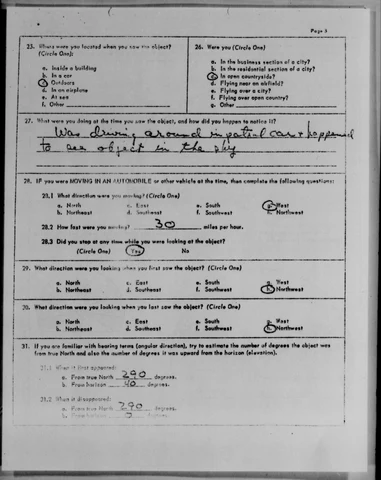 Page 3
25. Where were you located when you saw the object?
(Circle One):
a. Inside a building
b. In a car
c. Outdoors
d. In an airplane
e. At sea
f. Other
26. Were you (Circle One)
a. In the business section of a city?
b. In the residential section of a city?
c. In open countryside?
d. Flying near an airfield?
e. Flying over a city?
f. Flying over open country?
g. Other
27. What were you doing at the time you saw the object, and how did you happen to notice it?
Was driving around in patrol car & happened
to see object in the sky
28. IF you were MOVING IN AN AUTOMOBILE or other vehicle at the time, then complete the following questions:
28.1 What direction were you moving? (Circle One)
a. North c. East e. South g. West
b. Northeast d. Southeast f. Southwest h. Northwest
28.2 How fast were you moving? 30 miles per hour.
28.3 Did you stop at any time while you were looking at the object?
(Circle One) Yes No
29. What direction were you looking when you first saw the object? (Circle One)
a. North c. East e. South g. West
b. Northeast d. Southeast f. Southwest h. Northwest
30. What direction were you looking when you last saw the object? (Circle One)
a. North c. East e. South g. West
b. Northeast d. Southeast f. Southwest h. Northwest
31. If you are familiar with bearing terms (angular direction), try to estimate the number of degrees the object was
from true North and also the number of degrees it was upward from the horizon (elevation).
31.1 When it first appeared:
a. From true North 290 degrees.
b. From horizon 40 degrees.
31.2 When it disappeared:
a. From true North 290 degrees.
b. From horizon degrees.